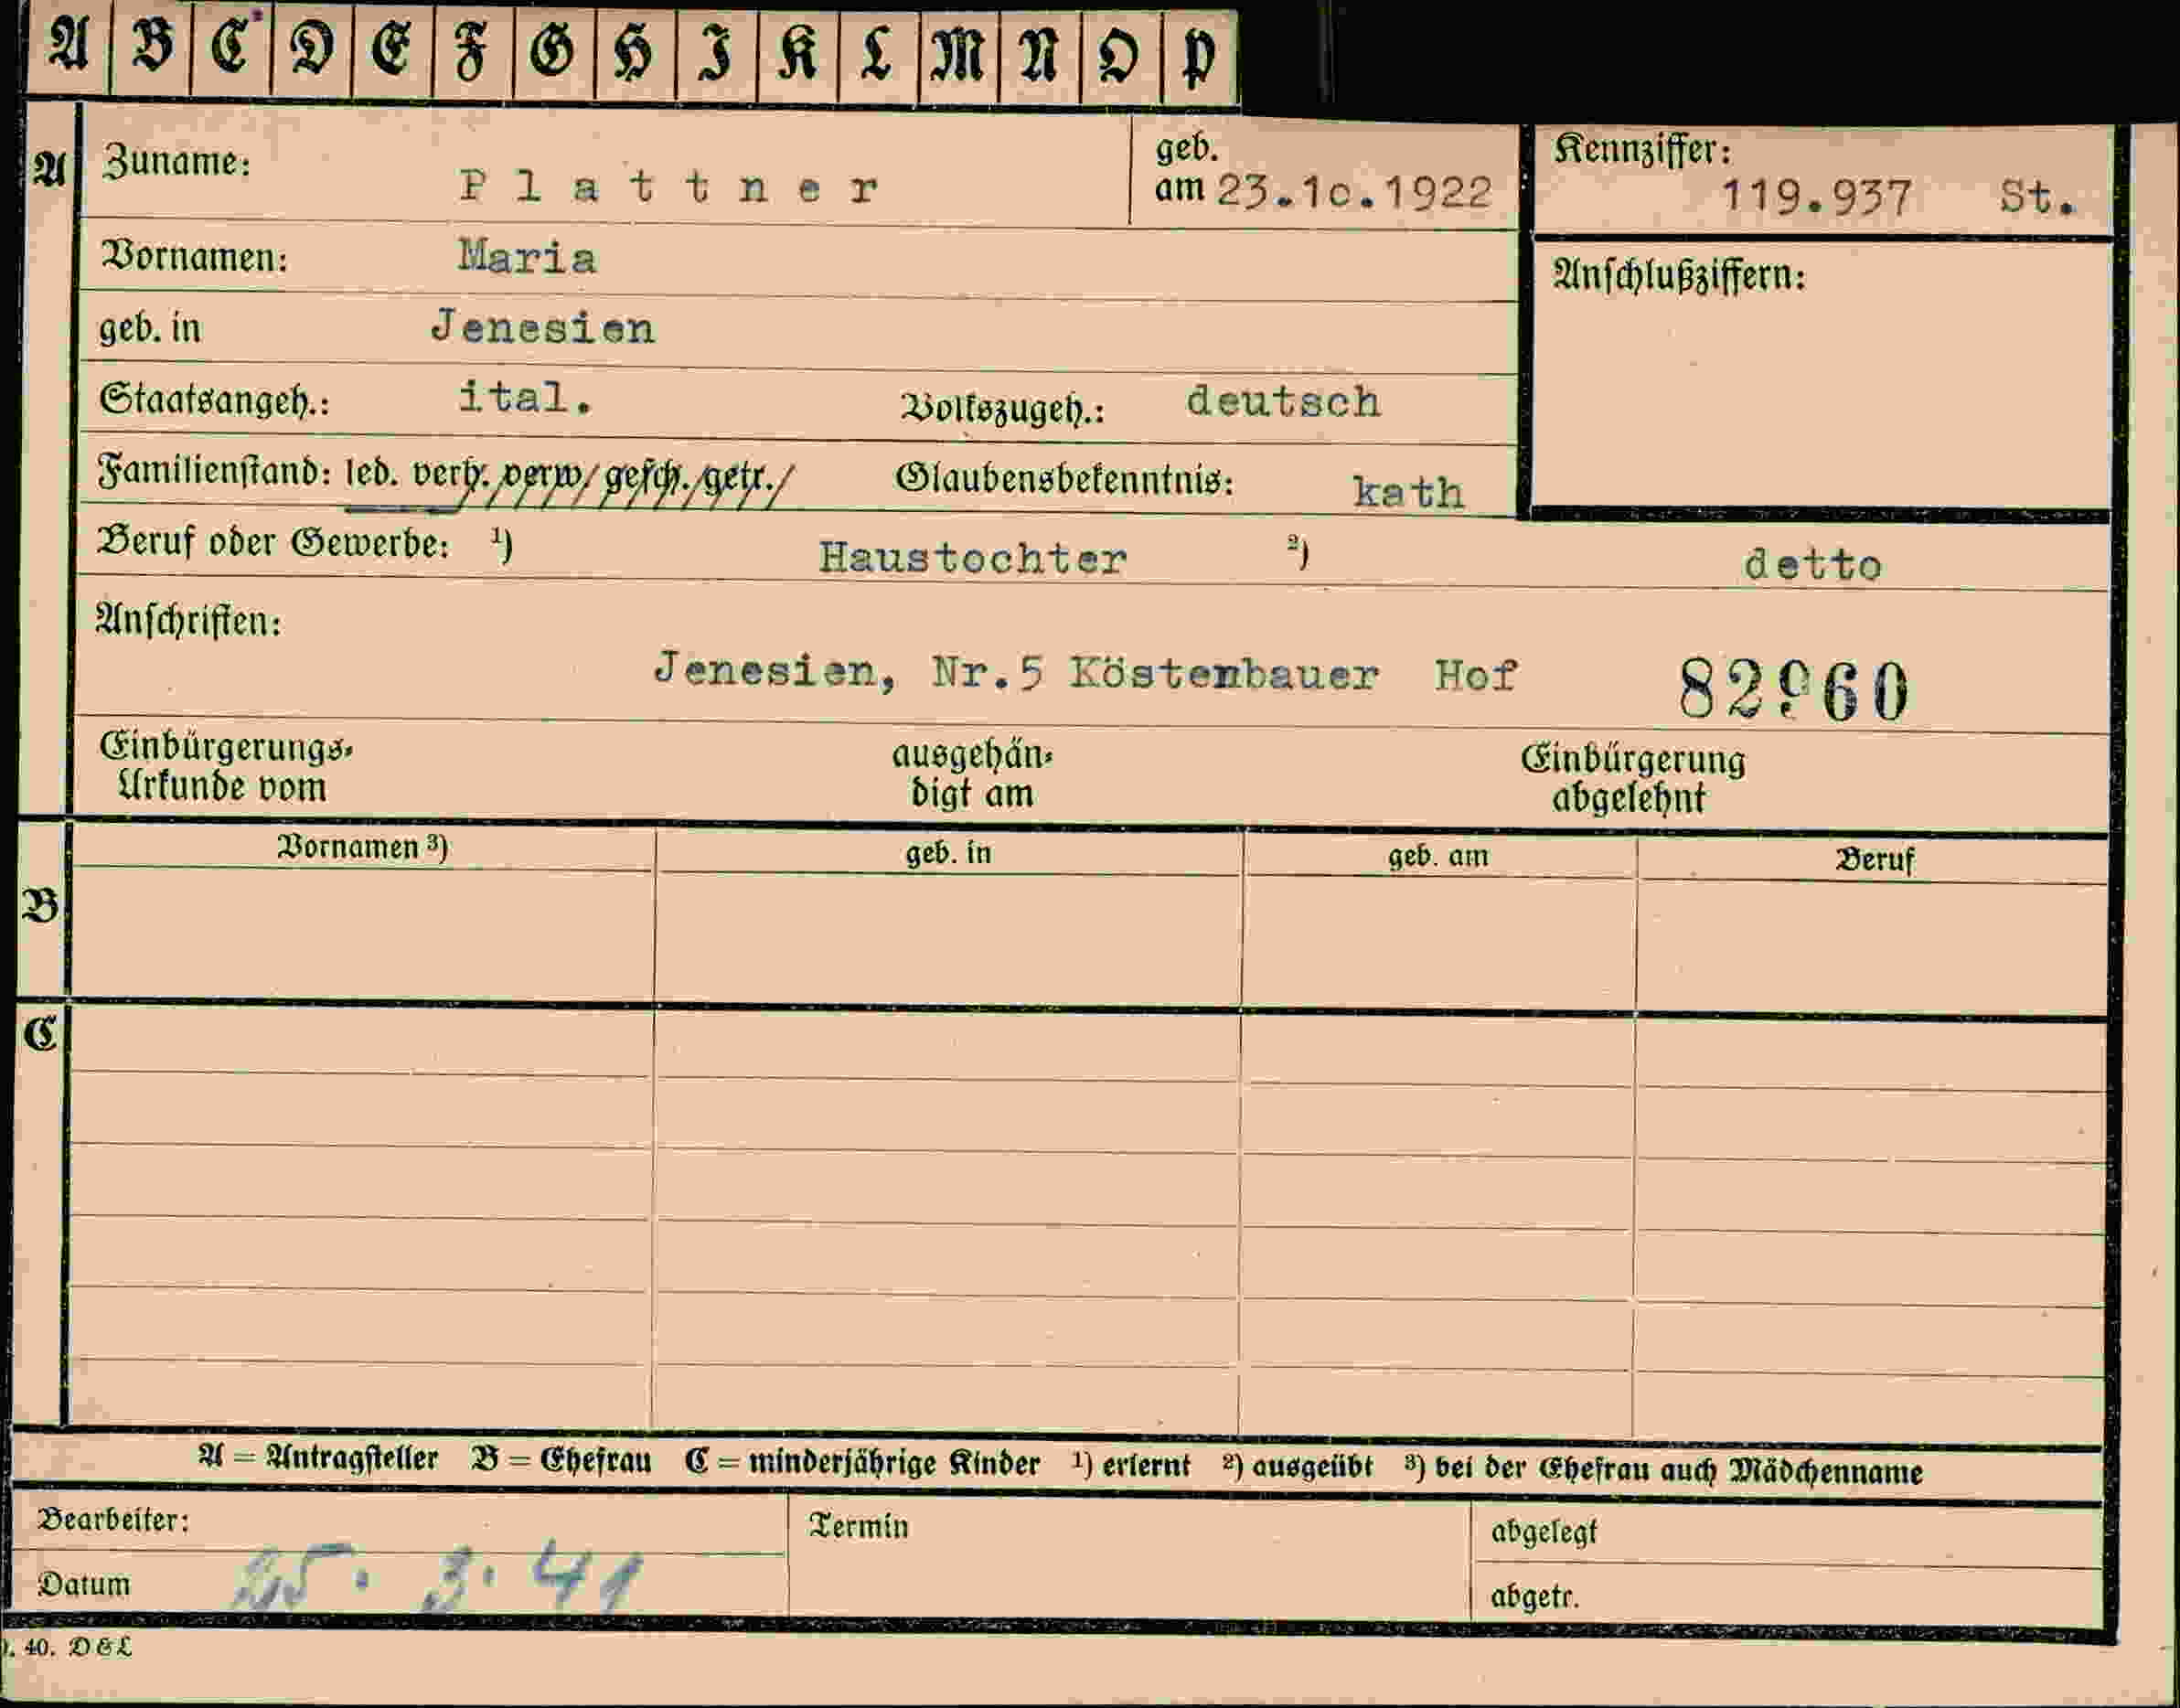 A B C D E F G H I K L M N O P
A Zuname: Plattner geb. am 23.1o.1922 Kennziffer: 119.937 St.
Vornamen: Maria Anschlußziffern:
geb. in Jenesien
Staatsangeh.: ital. Volkszugeh.: deutsch
Familienstand: led. verh. verw/ gesch. getr. Glaubensbekenntnis: kath
Beruf oder Gewerbe: ¹) Haustochter ²) detto
Anschriften:
Jenesien, Nr.5 Köstenbauer Hof 82960
Einbürgerungs- Urkunde vom ausgehän- digt am Einbürgerung abgelehnt
Vornamen ³) geb. in geb. am Beruf
B
C
A = Antragsteller B = Ehefrau C = minderjährige Kinder ¹) erlernt ²) ausgeübt ³) bei der Ehefrau auch Mädchenname
Bearbeiter: Termin abgelegt
Datum 25. 3. 41 abgetr.
. 40. D & L